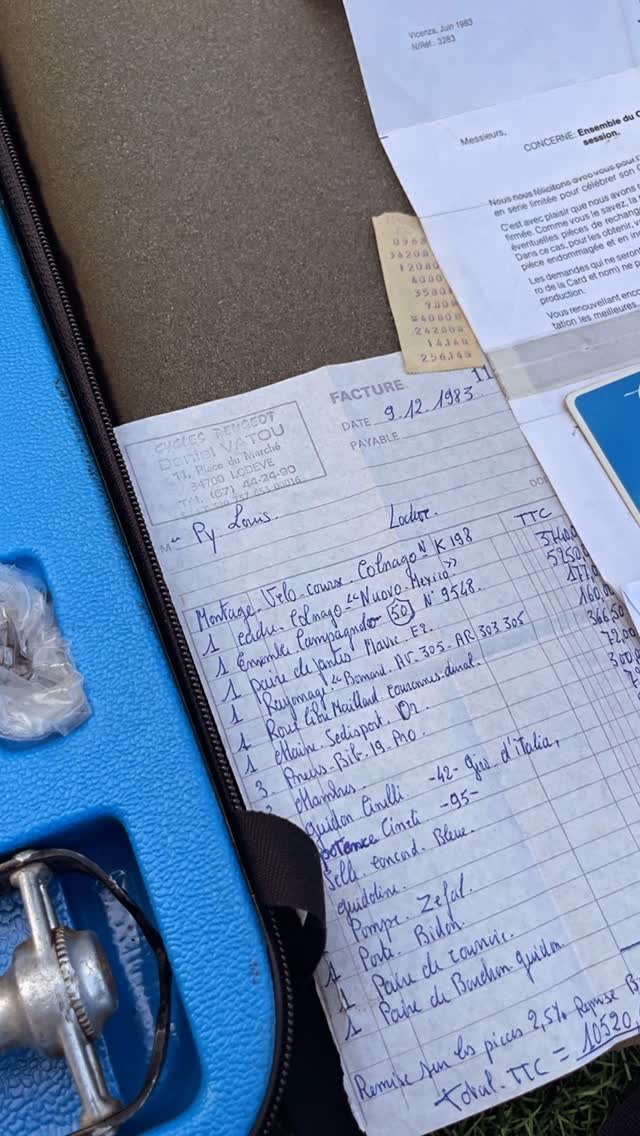 Vicenza, Juin 1983
N/Réf.: 3283
Messieurs,
CONCERNE: Ensemble du
session.
Nous nous félicitons avec vous pour
en série limitée pour célébrer son
C'est avec plaisir que nous avons
firmée. Comme vous le savez, la
éventuelles pièces de rechan
Dans ce cas, pour les obtenir,
pièce endommagée et en in
Les demandes qui ne seron
ro de la Card et nom) ne p
production.
Vous renouvellant enco
tation les meilleures.
242000
14.140
256.140
FACTURE
11
DATE 9.12.1983
PAYABLE
CYCLES PEUGEOT
Daniel VATOU
11, Place du Marché
34700 LODEVE
Tél. (67) 44-24-90
M Py Louis. Lodève.
TTC
Montage. Vélo. course. Colnago N° K 198
1 cadre. Colnago "Nuovo. Mexico"
1 Ensemble Campagnolo 50 N° 9548.
1 paire de jantes Mavic E2.
1 Rayonage "Bomard. AV. 305. AR 303 305
1 Roue libre Maillard couronnes dural.
1 chaine. Sedisport. Or
3 Pneus. Bib. 19. Pro.
guidon Cinelli -42- Giro d'italia,
potence Cineli -95-
Selle concord. Bleue.
guidoline.
Pompe. Zefal.
1 Porte. Bidon.
1 Paire de courroie.
1 Paire de Bouchon guidon
Remise sur les pieces 2,5% Remise
Total. TTC = 10520